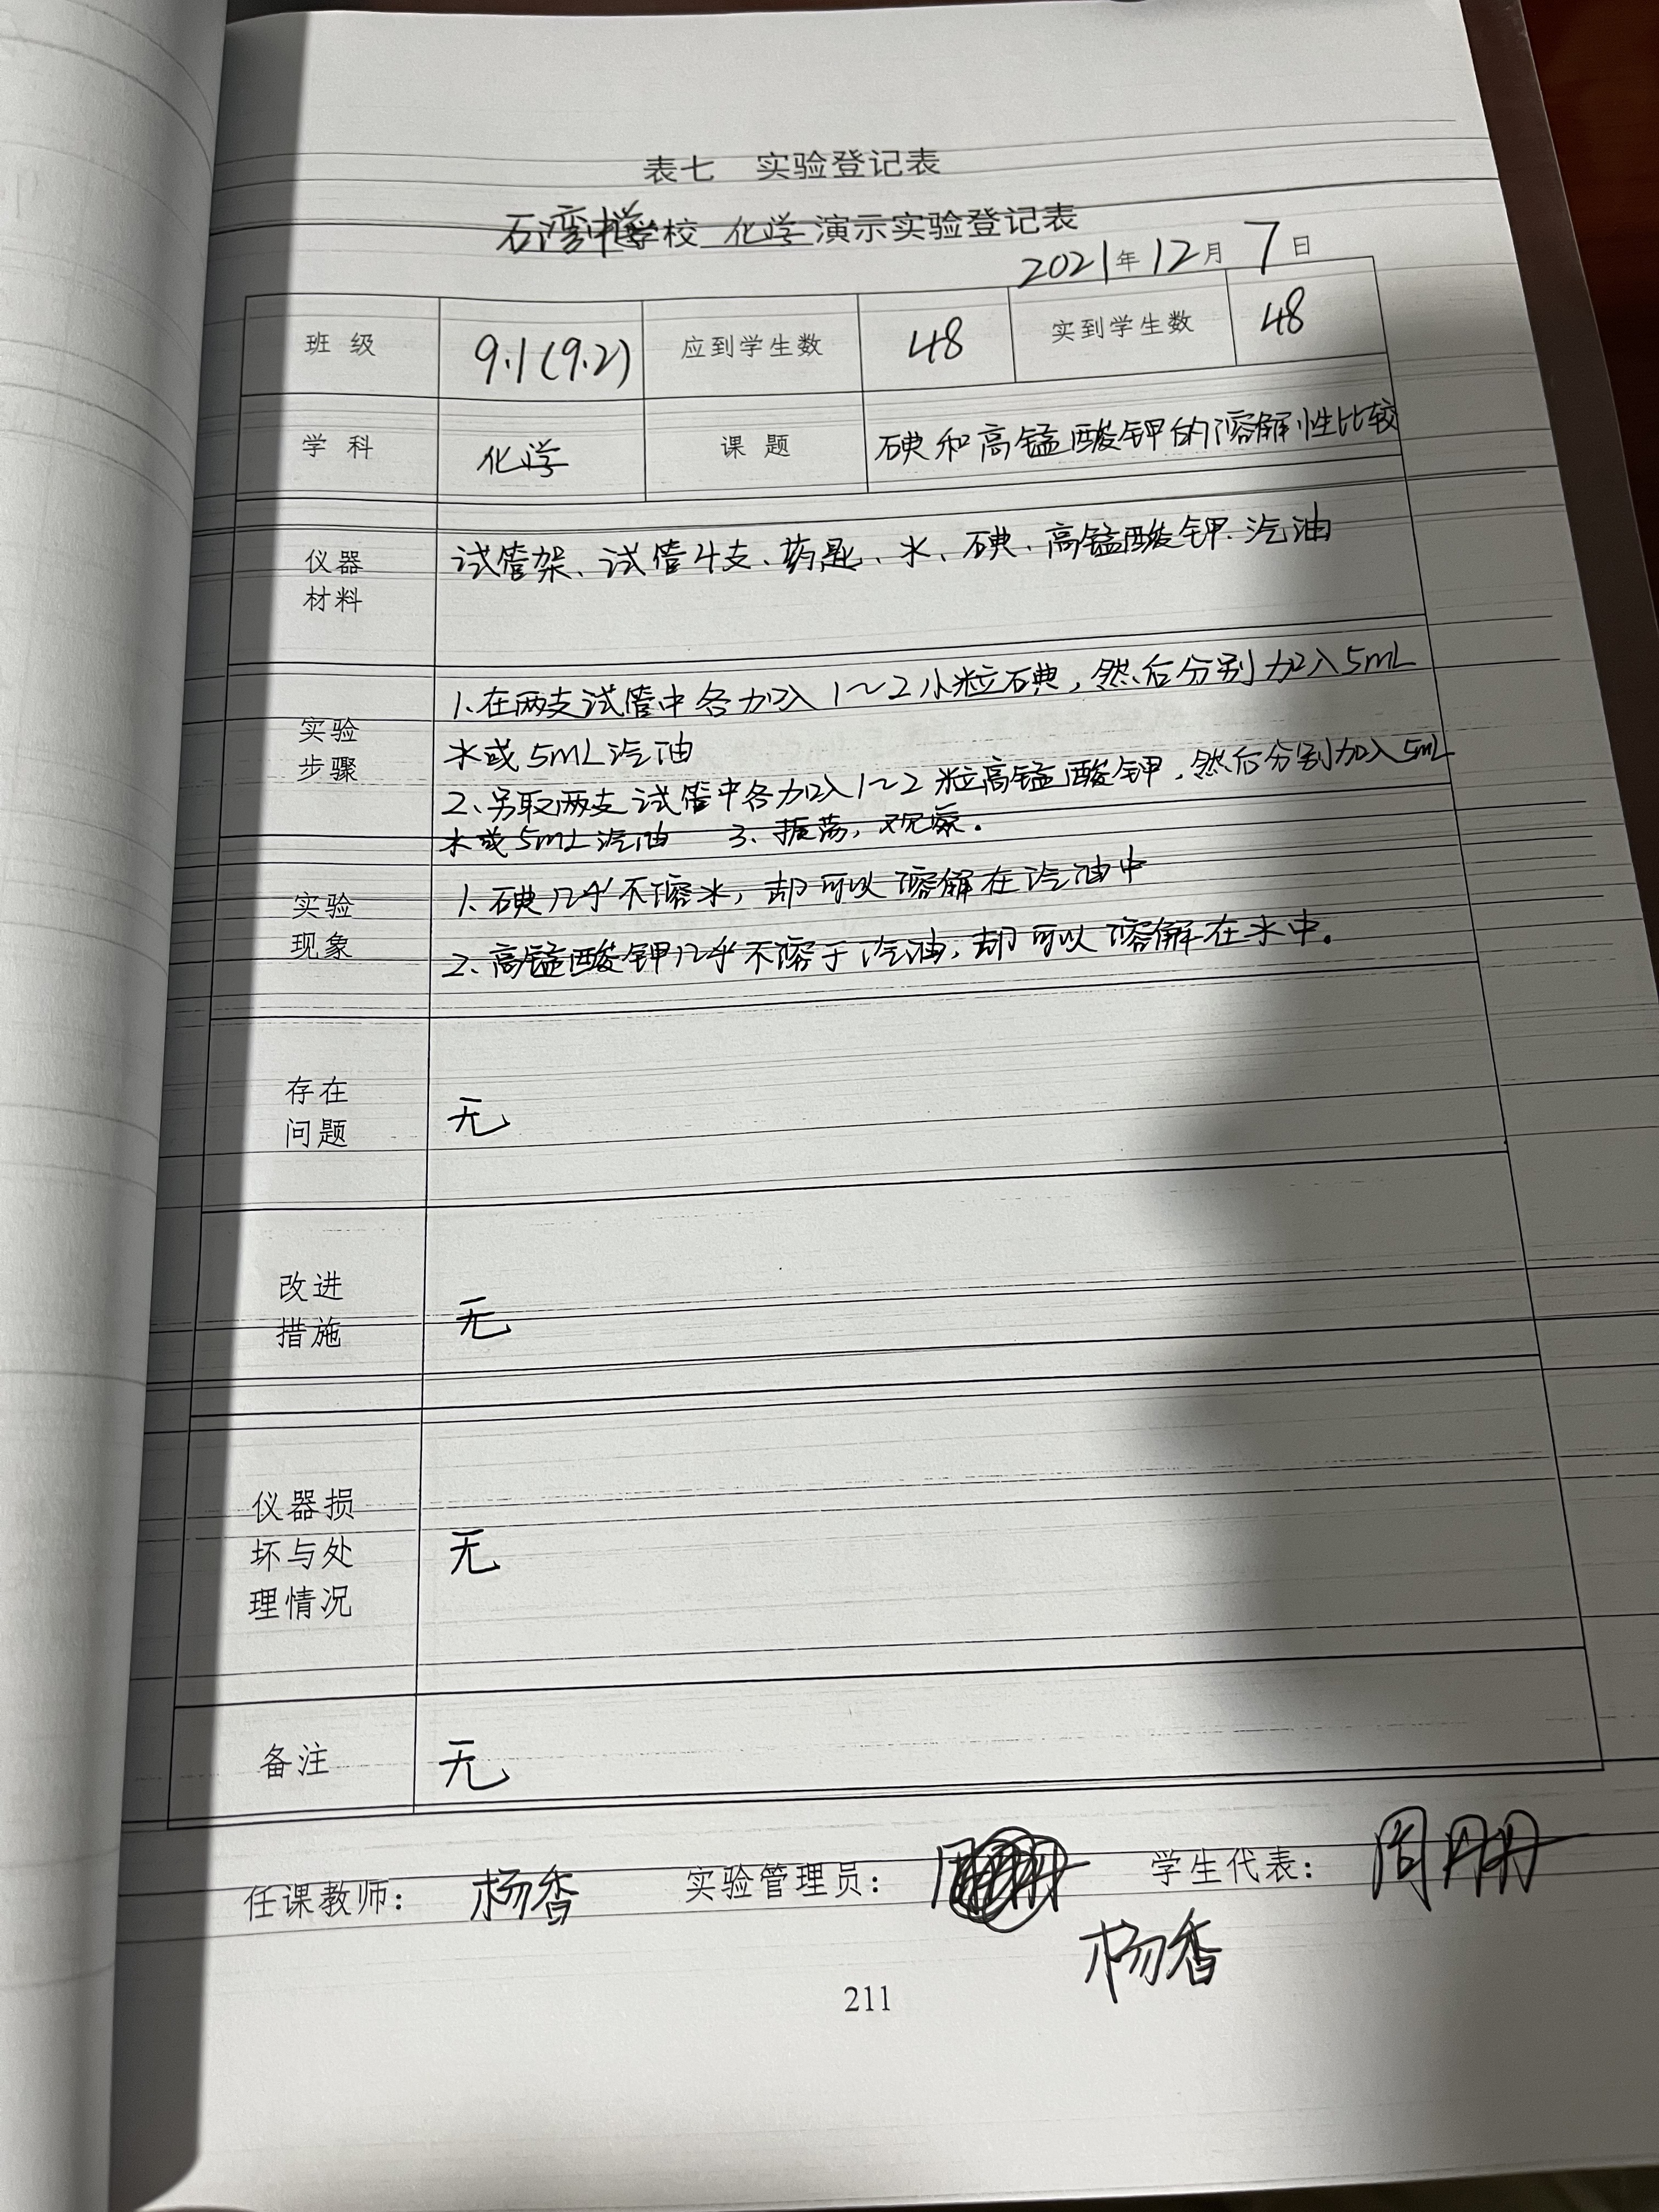 表七 实验登记表
石湾中学学校 化学 演示实验登记表
2021年12月7日
班级 9.1(9.2) 应到学生数 48 实到学生数 48
学科 化学 课题 碘和高锰酸钾的溶解性比较
仪器
材料
试管架、试管4支、药匙、水、碘、高锰酸钾、汽油
实验
步骤
1.在两支试管中各加入1~2小粒碘,然后分别加入5mL
水或5mL汽油
2、另取两支试管中各加入1~2粒高锰酸钾,然后分别加入5mL
水或5mL汽油 3、振荡,观察.
实验
现象
1.碘几乎不溶水,却可以溶解在汽油中
2、高锰酸钾几乎不溶于汽油,却可以溶解在水中.
存在
问题
无
改进
措施
无
仪器损
坏与处
理情况
无
备注 无
任课教师: 杨香 实验管理员: 学生代表: 周册
杨香
211